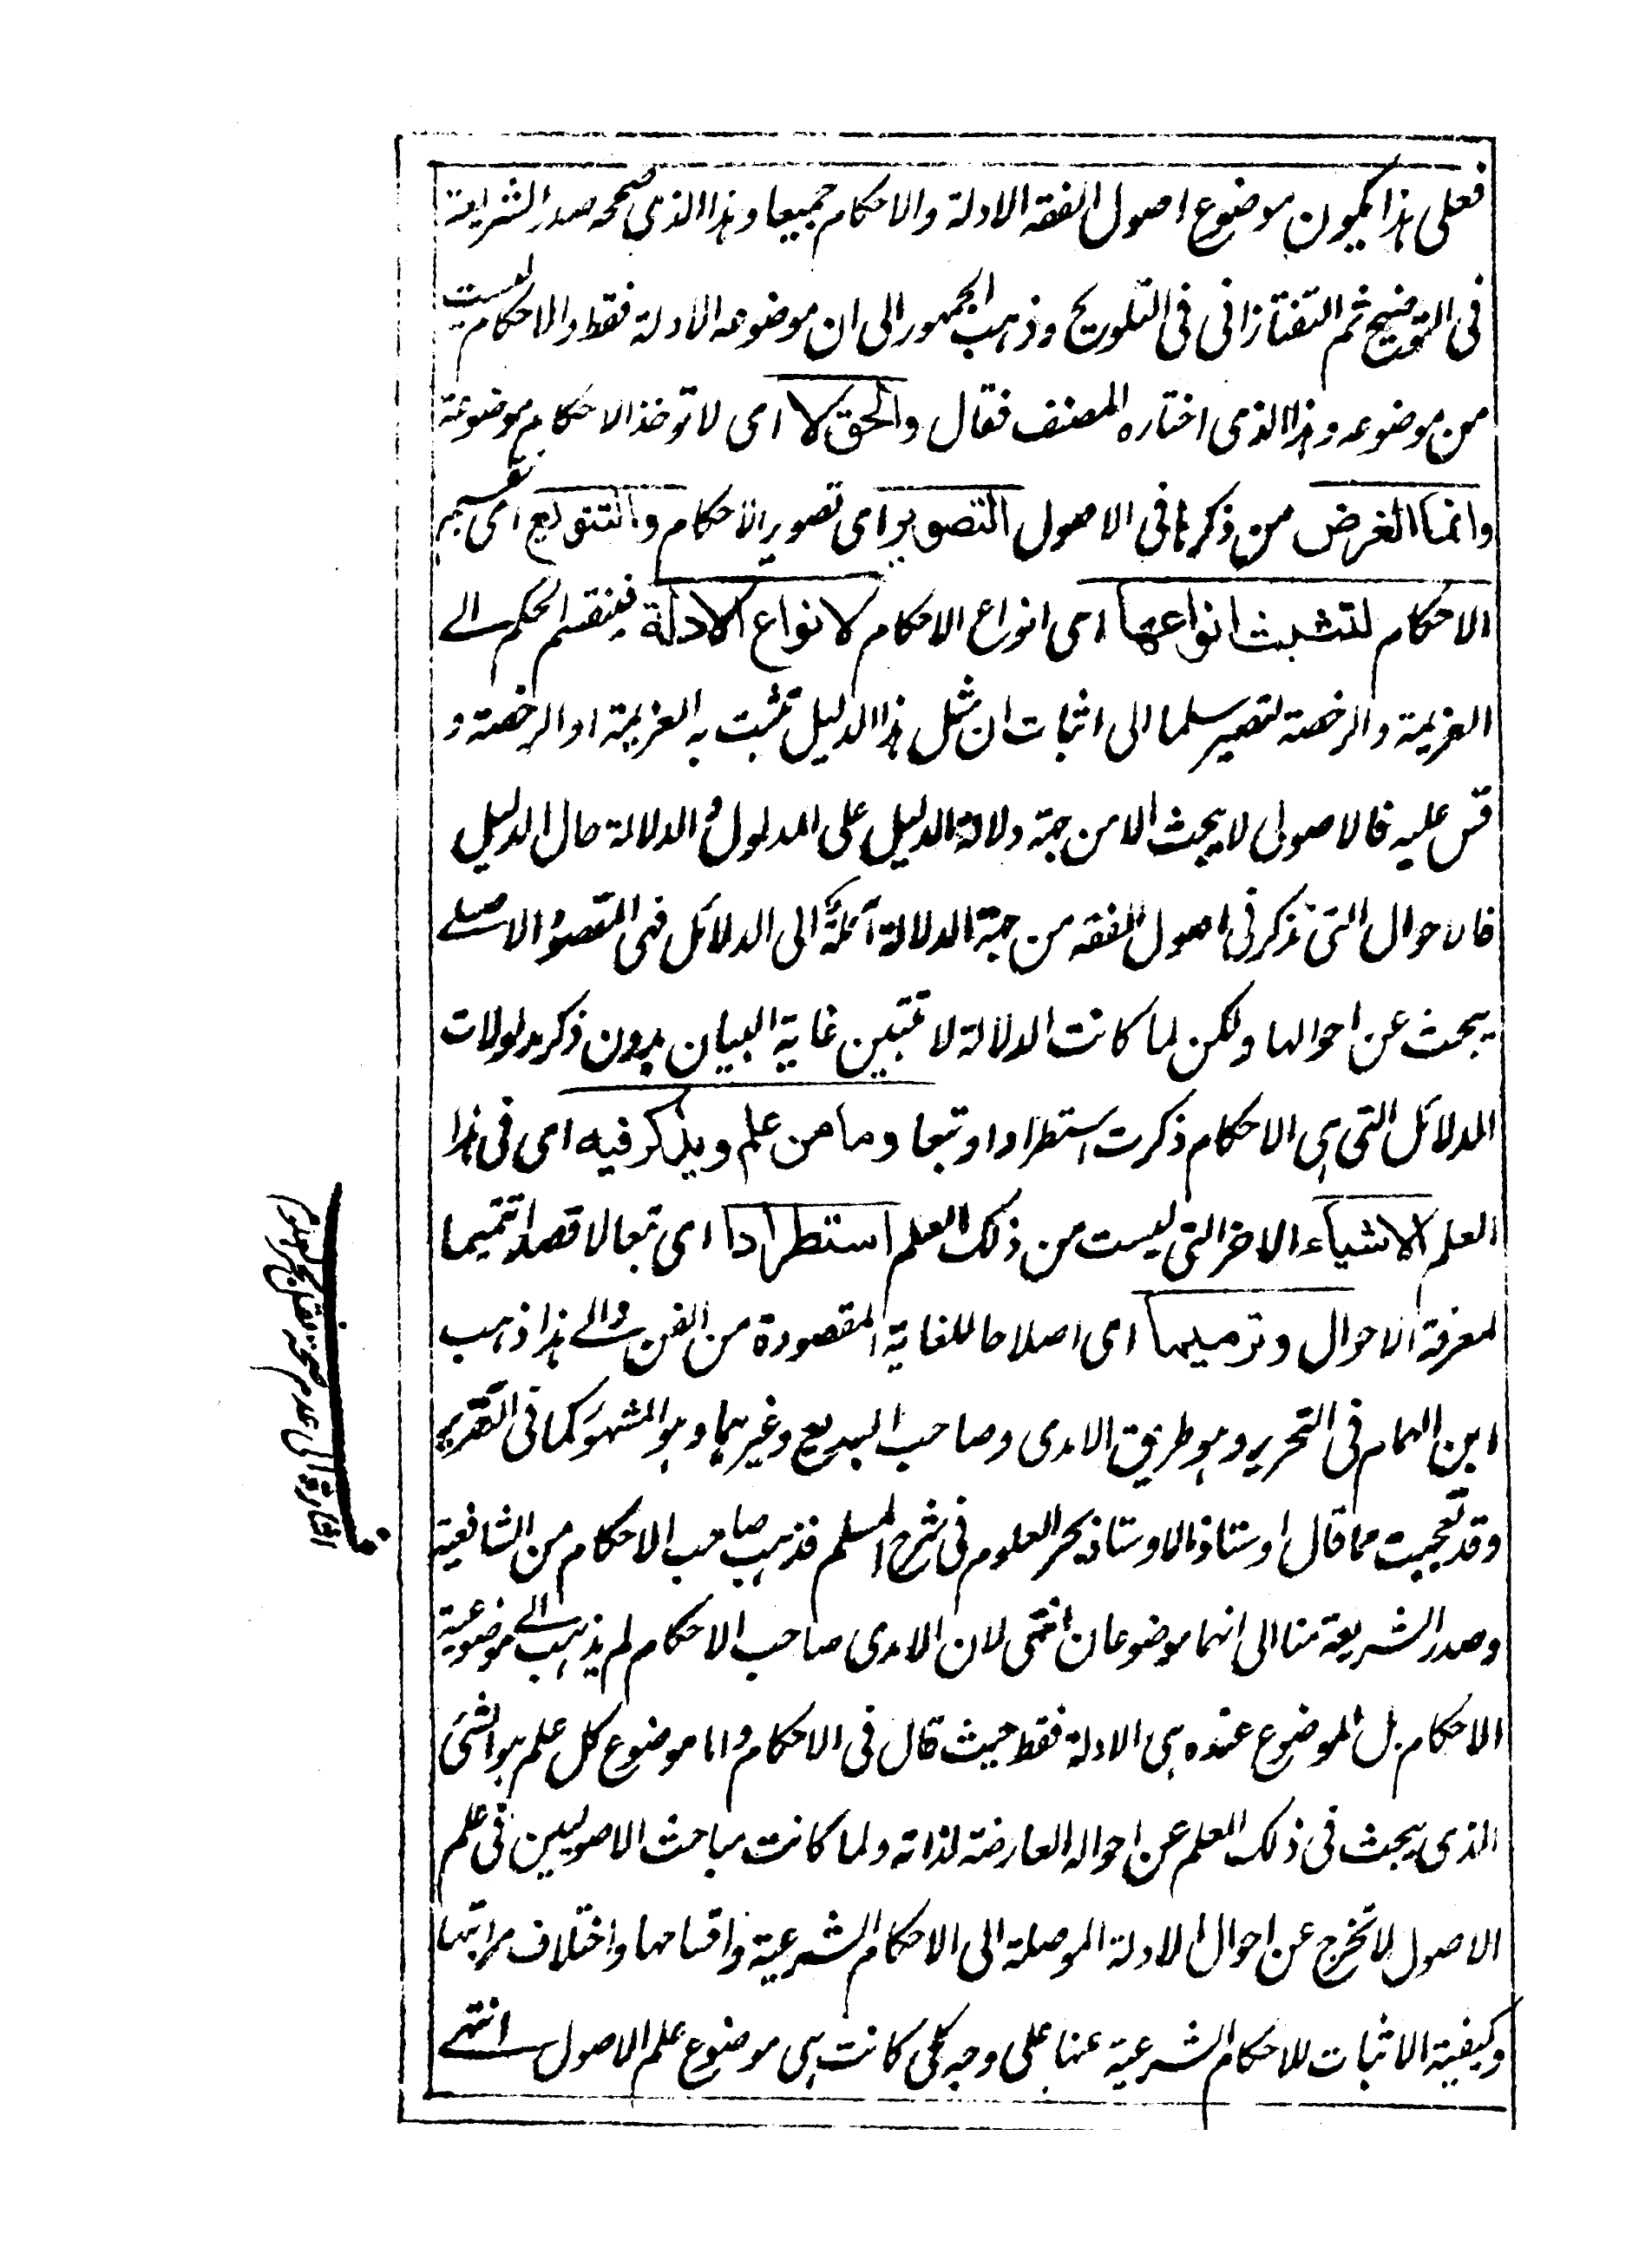 فعلى هذا يكون موضوع اصول الفقه الادلة والاحكام جميعا وهذا الذى صححه صدر الشريعة
فى التوضيح ثم التفتازانى فى التلويح وذهب الجمهور الى ان موضوعه الادلة فقط والاحكام ليست
من موضوعه وهذا الذى اختاره المصنف فقال والحق لا اى لا توخذ الاحكام موضوعة
وانما الغرض من ذكرها فى الاصول التصوير اى تصوير الاحكام والتنويع اى تقسيم
الاحكام لتثبت انواعها اى انواع الاحكام لانواع الادلة فينقسم الحكم الے
العزيمة والرخصة لتصير سلما الى اثبات ان مثل هذا الدليل تثبت به العزيمة او الرخصة و
قس عليه فالاصولى لا يبحث الا من جهة دلالة الدليل على المدلول والدلالة حال الدليل
فالاحوال التى تذكر فى اصول الفقه من جهة الدلالة آئلة الى الدلائل فهى المقصود الاصلے
يبحث عن احوالها ولكن لما كانت الدلالة لا تتبين غاية البيان بدون ذكر مدلولات
الدلائل التى هى الاحكام ذكرت استطرادا وتبعا وما من علم ويذكر فيه اى فى هذا
العلم الاشياء الاخر التى ليست من ذلك العلم استطرادا اى تبعا لا قصدا تتميما
لمعرفة الاحوال وترميما اى اصلاحا للغاية المقصودة من الفن والے هذا ذهب
ابن الهمام فى التحرير وهو طريق الامدى وصاحب البديع وغيرهما وهو المشهور كما فى التقرير
وقد تعجبت مما قال اوستاذ الاوستاذ بحر العلوم فى شرح المسلم فذهب صاحب الاحكام من الشافعية
وصدر الشريعة منا الى انهما موضوعان انتهى لان الامدى صاحب الاحكام لم يذهب الے موضوعية
الاحكام بل الموضوع عنده هى الادلة فقط حيث قال فى الاحكام واما موضوع كل علم هو الشئ
الذى يبحث فى ذلك العلم عن احواله العارضة لذاته ولما كانت مباحث الاصوليين فى علم
الاصول لا تخرج عن احوال الادلة الموصلة الى الاحكام الشرعية واقسامها واختلاف مراتبها
وكيفية الاثبات للاحكام الشرعية عنها على وجه كلى كانت هى موضوع علم الاصول انتهے